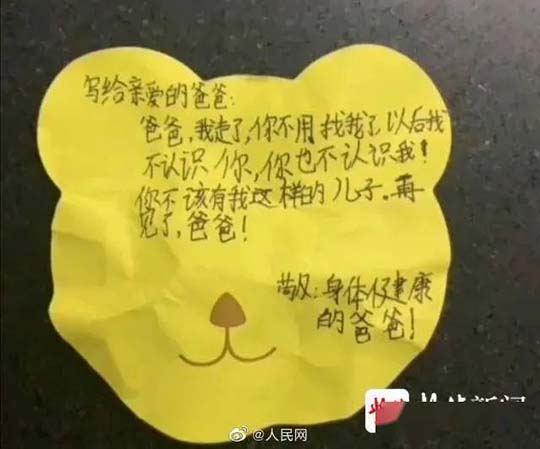 写给亲爱的爸爸:
爸爸,我走了,你不用找我了,以后我
不认识你,你也不认识我!
你不该有我这样的儿子。再
见了,爸爸!
敬:身体健康
的爸爸!
@人民网
新闻